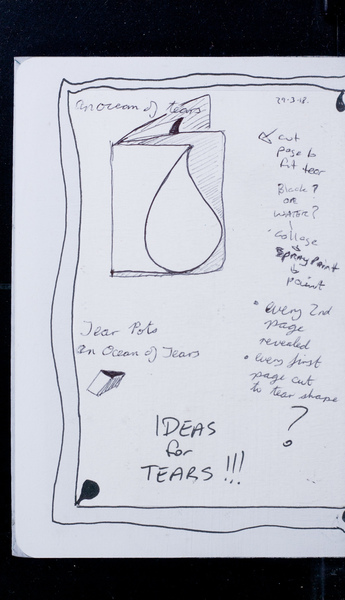 an ocean of tears
29-3-18.
cut
page to
fit tear
Black?
OR
WATER?
• Collage
Spray Paint
Paint
• every 2nd
page
revealed
• every first
page cut
to tear shape
?
Tear Pots
an Ocean of Tears
IDEAS
for
TEARS!!!